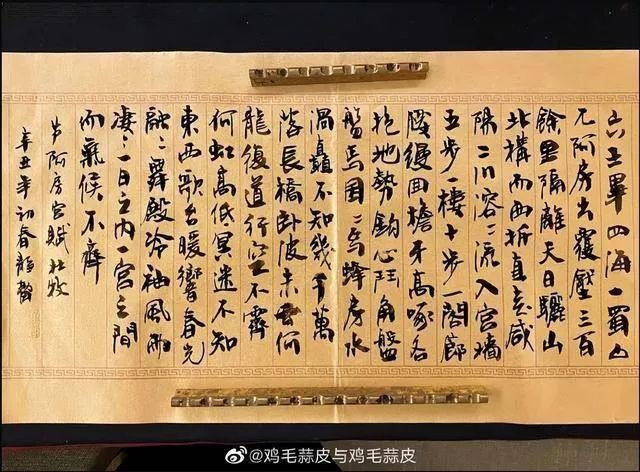 六王畢四海一蜀山
兀阿房出覆壓三百
餘里隔離天日驪山
北構而西折直走咸
陽二川溶〻流入宮墻
五步一樓十步一閣廊
腰縵回檐牙高啄各
抱地勢鈎心鬥角盤
盤焉囷〻焉蜂房水
渦矗不知幾千萬
落長橋卧波未雲何
龍復道行空不霽
何虹高低冥迷不知
東西歌台暖響春光
融〻舞殿冷袖風雨
凄〻一日之内一宮之間
而氣候不齊
节阿房宫賦杜牧
辛丑年初春
@鸡毛蒜皮与鸡毛蒜皮